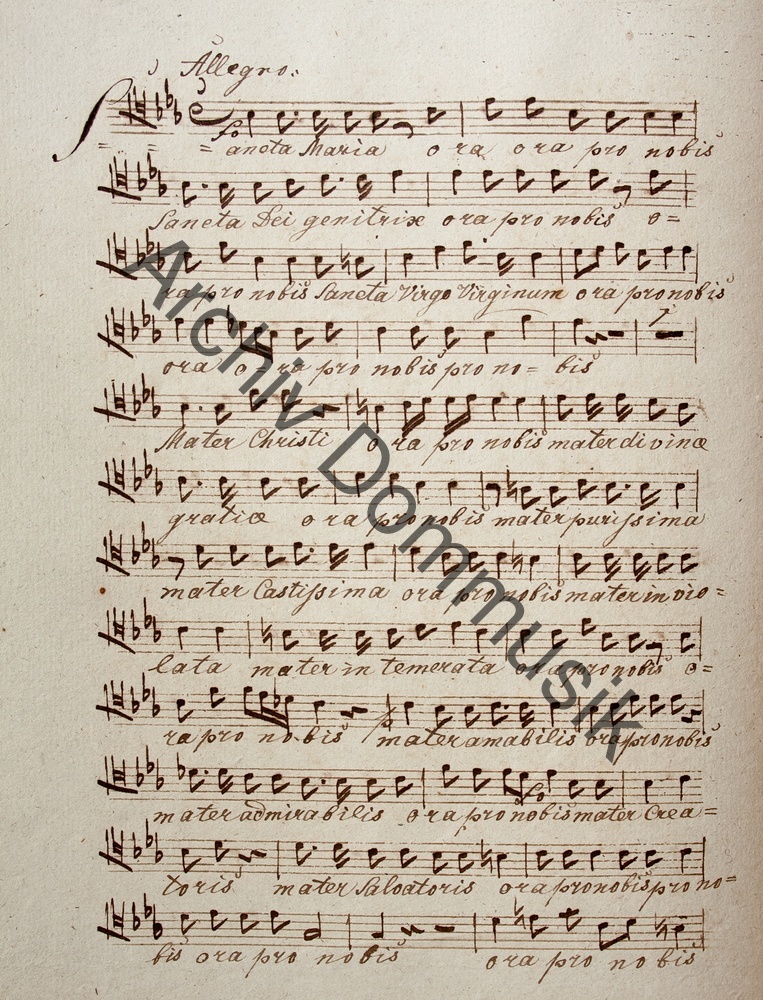 Allegro.
fo
Sancta Maria o ra o ra pro nobis
Sancta Dei genitrix o ra pro nobis o=
ra pro nobis Sancta Virgo Virginum o ra pro nobis
ora o= ra pro nobis pro no= bis
Mater Christi o ra pro nobis mater divinæ
gratiæ o ra pro nobis mater purissima
mater Castissima ora pro nobis mater in vio=
lata mater in temerata ora pro nobis o=
ra pro no-bis mater amabilis ora pro nobis
mater admirabilis o ra pro nobis mater Crea=
toris mater Salvatoris ora pro nobis pro no=
bis ora pro nobis ora pro no bis
Archiv Dommusik